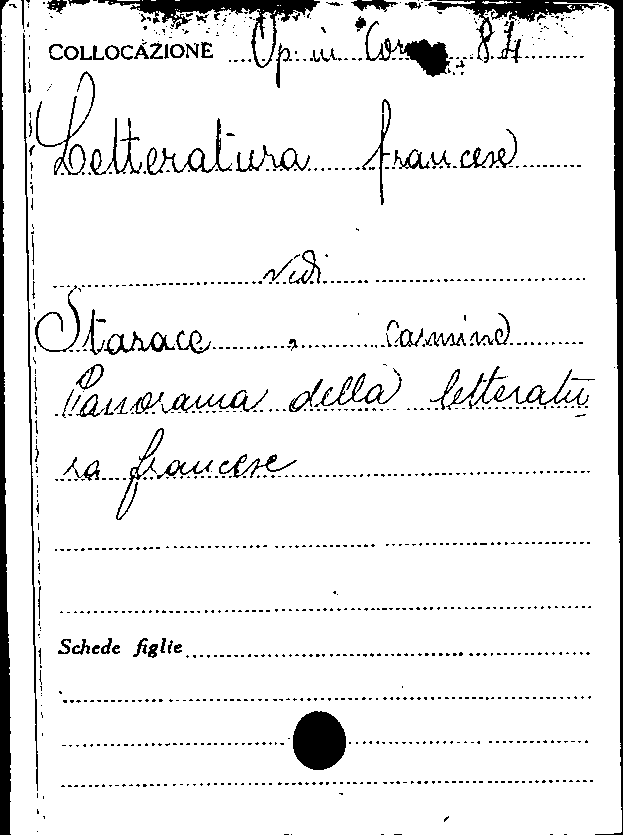 COLLOCAZIONE Op. in Cor 84
Letteratura francese
vedi
Starace, Carmine
Panorama della letteratu
ra francese
Schede figlie